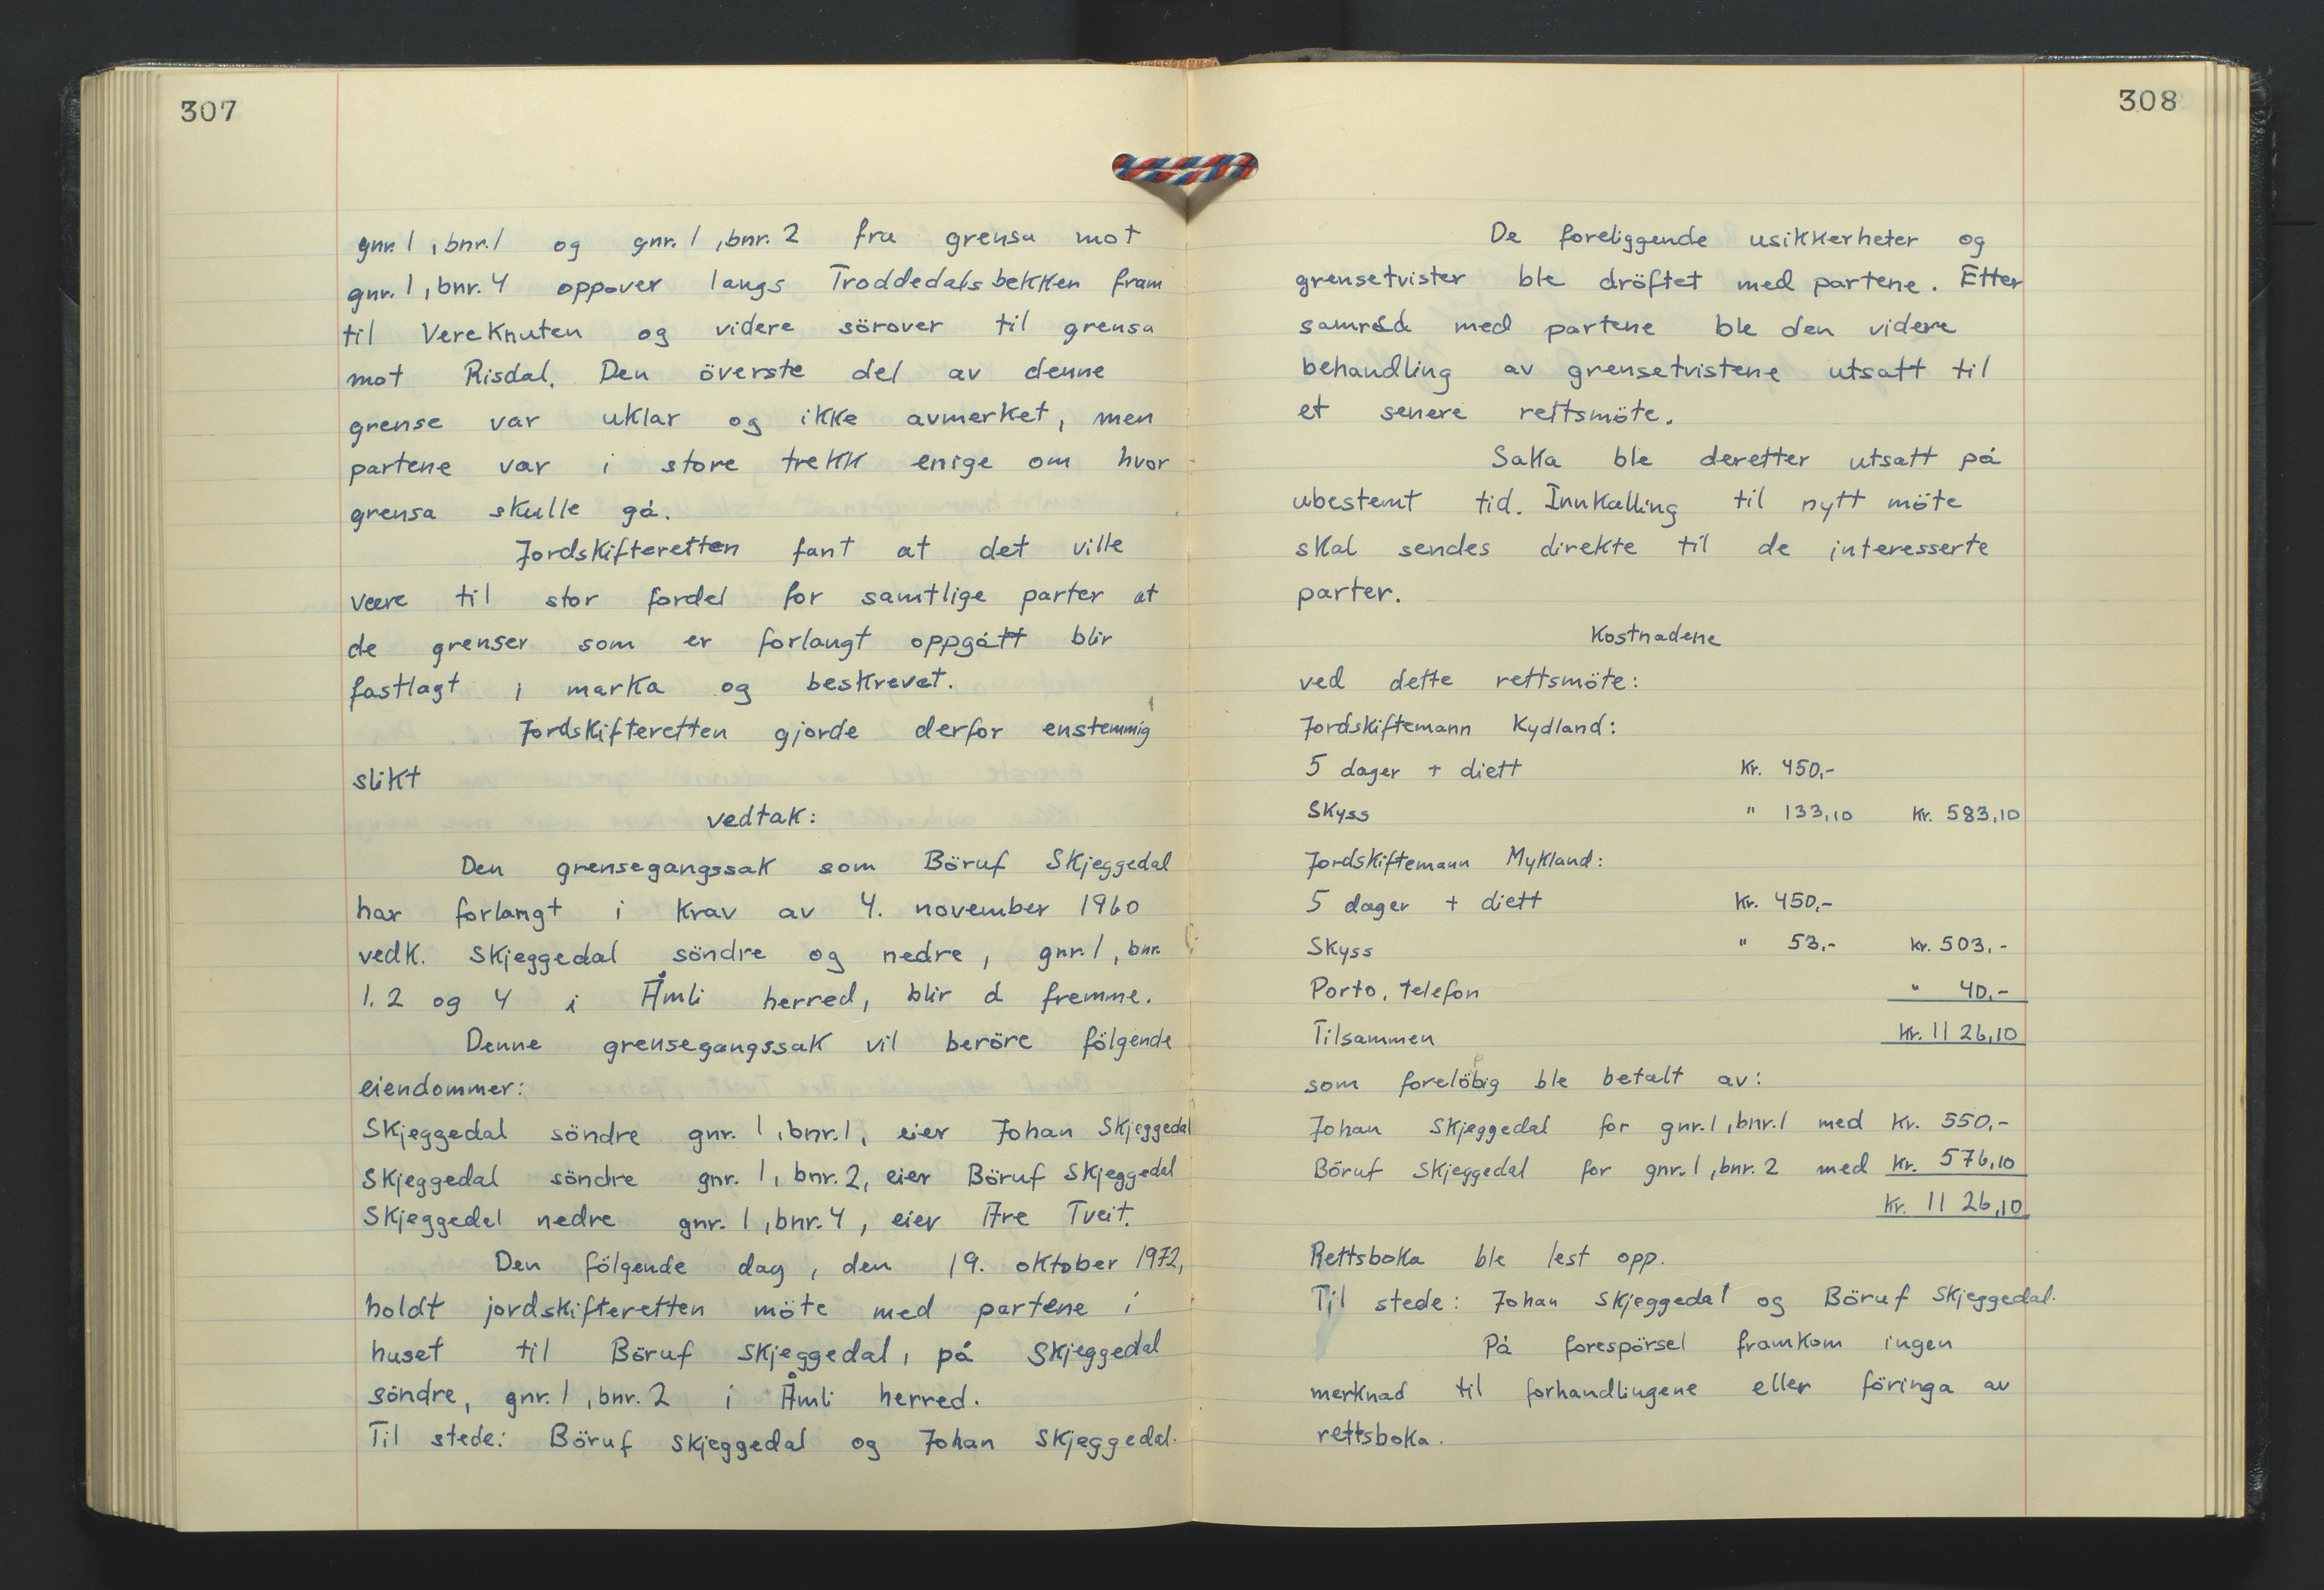 307
gnr. 1, bnr. 1 og gnr. 1, bnr. 2 fra grensa mot
gnr. 1, bnr. 4 oppover langs Troddedalsbekken fram
til Vereknuten og videre sörover til grensa
mot Risdal. Den överste del av denne
grense var uklar og ikke avmerket, men
partene var i store trekk enige om hvor
grensa skulle gå.
Jordskifteretten fant at det ville
være til stor fordel for samtlige parter at
de grenser som er forlangt oppgått blir
fastlagt i marka og beskrevet.
Jordskifteretten gjorde derfor enstemmig
slikt
vedtak:
Den grensegangssak som Böruf Skjeggedal
har forlangt i krav av 4. november 1960
vedk. Skjeggedal söndre og nedre, gnr. 1, bnr.
1. 2 og 4 i Åmli herred, blir å fremme.
Denne grensegangssak vil beröre fölgende
eiendommer:
Skjeggedal söndre gnr. 1, bnr. 1, eier Johan Skjeggedal
Skjeggedal söndre gnr. 1, bnr. 2, eier Böruf Skjeggedal
Skjeggedal nedre gnr. 1, bnr. 4, eier Are Tveit.
Den fölgende dag, den 19. oktober 1972,
holdt jordskifteretten möte med partene i
huset til Böruf Skjeggedal, på Skjeggedal
söndre, gnr. 1, bnr. 2 i Åmli herred.
Til stede: Böruf Skjeggedal og Johan Skjeggedal.
308
De foreliggende usikkerheter og
grensetvister ble dröftet med partene. Etter
samråd med partene ble den videre
behandling av grensetvistene utsatt til
et senere rettsmöte.
Saka ble deretter utsatt på
ubestemt tid. Innkalling til nytt möte
skal sendes direkte til de interesserte
parter.
Kostnadene
ved dette rettsmöte:
Jordskiftemann Kydland:
5 dager + diett kr. 450,-
Skyss " 133,10 kr. 583,10
Jordskiftemann Mykland:
5 dager + diett kr. 450,-
Skyss " 53,- kr. 503,-
Porto, telefon " 40,-
Tilsammen kr. 1126,10
som forelöbig ble betalt av:
Johan Skjeggedal for gnr. 1, bnr. 1 med kr. 550,-
Böruf Skjeggedal for gnr. 1, bnr. 2 med kr. 576,10
kr. 1126,10
Rettsboka ble lest opp.
Til stede: Johan Skjeggedal og Böruf Skjeggedal.
På forespörsel framkom ingen
merknad til forhandlingene eller föringa av
rettsboka.